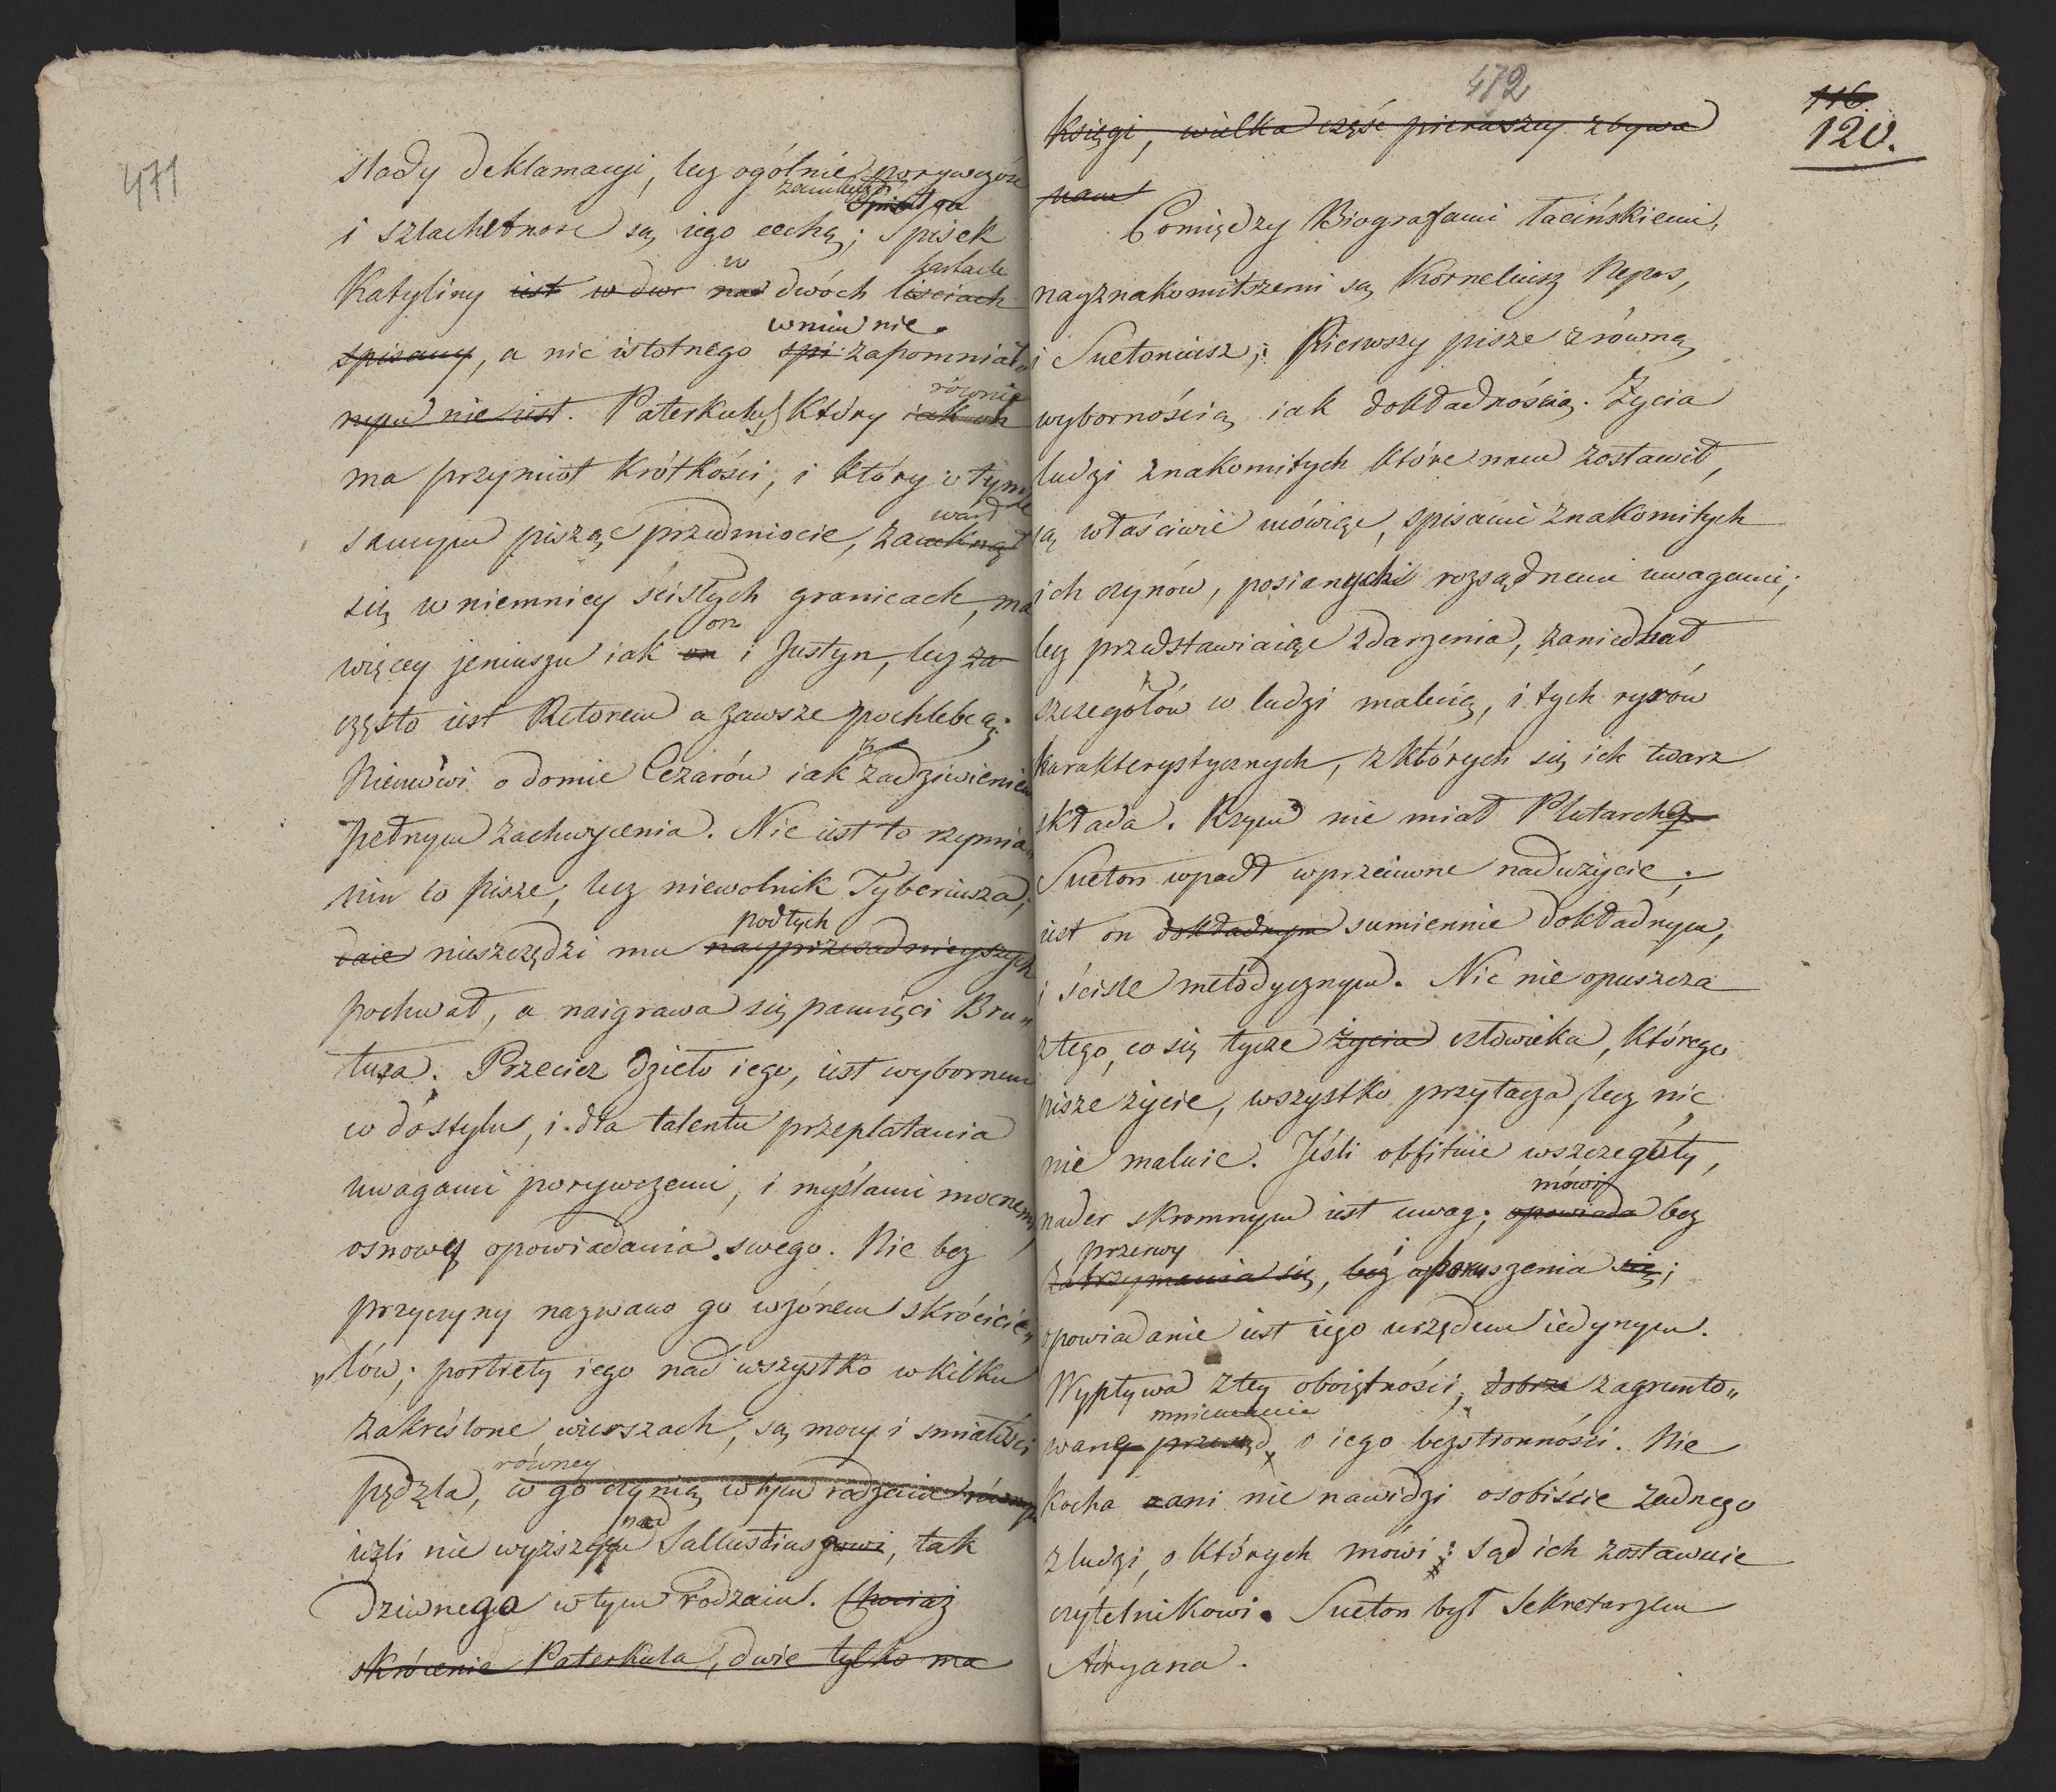 471
slady deklamacyi, lecz ogólnie porywczość
i szlachetnosc są iego cechą; Spisek
w kartach
Katyliny iest w dwr na dwóch liściach
w nim nie
spisany, a nic istotnego spi zapomniało
równie
nym nie iest. Paterkul, który iak on
ma przymiot krótkości, i który o tymże
warł
samym pisząc przedmiocie, zamknął
się w niemniey ścisłych granicach, ma
on
więcey jeniuszu iak on i Justyn, lecz za
często iest Retorem a zawsze pochlebcą.
z
Niemówi o domie Cezarów iak zadziwieniem
pełnym zachwycenia. Nie iest to rzymia„
nin co pisze, lecz niewolnik Tyberiusza;
podłych
daie nieszczędzi mu nayprzesadnieyszych
pochwał, a naigrawa się pamięci Bru„
tusa. Przecież dzieło iego, iest wybornem
co do stylu, i dla talentu przeplatania
uwagami porywczemi, i myślami mocnemi,
osnowę opowiadania swego. Nie bez
przyczyny nazwano go wzórem skróciciе„
„lów; portrety iego nad wszystko w kilku
zakréslone wierszach, są mocy i smiałości
równey
pędzla, co go czynią w tym rodzaiu równym
nad
ieżli nie wyższym Sallustiuszowi, tak
dziwnego w tym rodzaiu. Chociaż
skrócenie Paterkula, dwie tylko ma
472
116
120.
księgi, wielka część pierwszey zbywa
nam
Pomiędzy Biografami łacińskiemi,
nayznakomitszemi są Korneliusz Nepos,
i Suetoniusz; Pierwszy pisze z równą
wybornością iak dokładnością. Życia
ludzi znakomitych które nam zostawił,
są właściwie mówiąc, spisami znakomitych
ich czynów, posianych rozsądnemi uwagami;
lecz przedstawiaiąc zdarzenia, zaniedbał
szczegółów ludzi maluią, i tych rysów
karakterystycznych, z których się ich twarz
składa. Rzym nie miał Plutarcha
Sueton wpadł w przeciwne nadużycie;
iest on dokładnym sumiennie dokładnym,
i ściśle metodycznym. Nic nie opuszcza
z tego, co się tycze życia człowieka, którego
pisze życie, wszystko przytacza, lecz nic
nie maluie. Jéśli obfituie w szczegóły,
mówi
nader skromnym iest uwag; opowiada bez
przerwy i
zatrzymania się, bez poruszenia się;
opowiadanie iest iego urzędem iedynym.
Wypływa z tey oboiętności, dobrze zagrunto„
mniemanie
wane przesąd, o iego bezstronności. Nie
kocha ani nie nawidzi osobiście żadnego
z ludzi, o których mówi; sąd ich zostawuie
czytelnikowi. Sueton był Sekretarzem
Adryana.